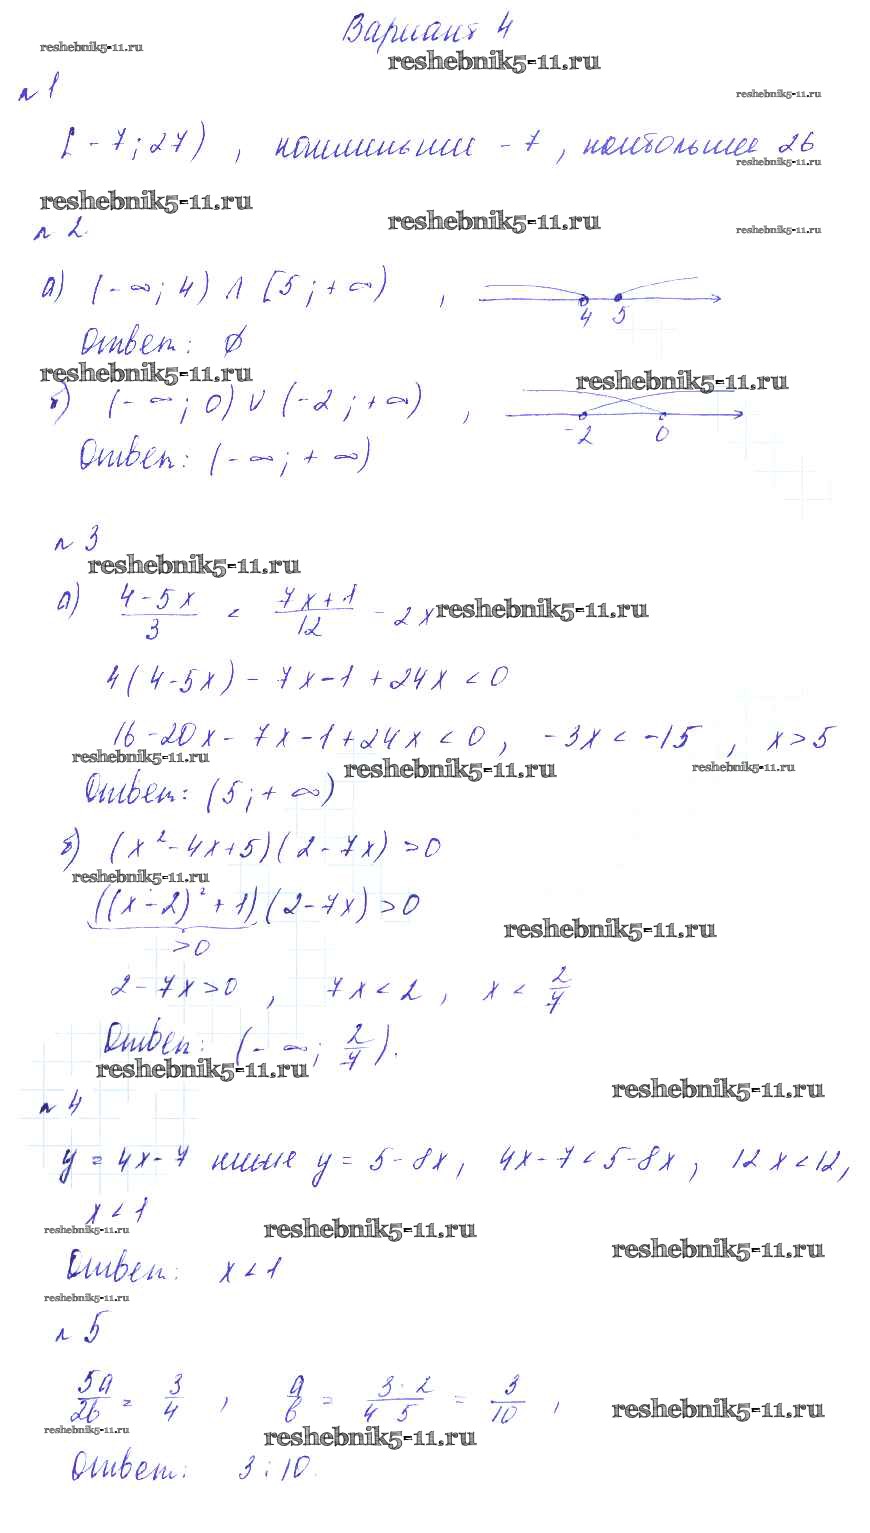 Вариант 4
reshebnik5-11.ru
reshebnik5-11.ru
№ 1
reshebnik5-11.ru
[-7; 27) , наименьшее -7, наибольшее 26
reshebnik5-11.ru
reshebnik5-11.ru
reshebnik5-11.ru
№ 2.
reshebnik5-11.ru
а) (-∞; 4) ∩ [5; +∞) ,
4 5
Ответ: ∅
reshebnik5-11.ru
reshebnik5-11.ru
б) (-∞; 0) ∪ (-2; +∞) ,
-2 0
Ответ: (-∞; +∞)
№ 3
reshebnik5-11.ru
а) (4-5x)/3 < (7x+1)/12 - 2x
reshebnik5-11.ru
4(4-5x) - 7x-1+24x < 0
16-20x-7x-1+24x < 0, -3x < -15 , x > 5
reshebnik5-11.ru
reshebnik5-11.ru
reshebnik5-11.ru
Ответ: (5; +∞)
б) (x²-4x+5)(2-7x) > 0
reshebnik5-11.ru
((x-2)²+1)(2-7x) > 0
reshebnik5-11.ru
>0
2-7x > 0 , 7x < 2, x < 2/7
Ответ: (-∞; 2/7).
reshebnik5-11.ru
reshebnik5-11.ru
№ 4
y = 4x-7 ниже y = 5-8x, 4x-7 < 5-8x, 12x < 12,
x < 1
reshebnik5-11.ru
reshebnik5-11.ru
reshebnik5-11.ru
Ответ: x < 1
reshebnik5-11.ru
№ 5
5a/2b = 3/4 , a/b = 3·2/4·5 = 3/10 ,
reshebnik5-11.ru
reshebnik5-11.ru
reshebnik5-11.ru
Ответ: 3:10.